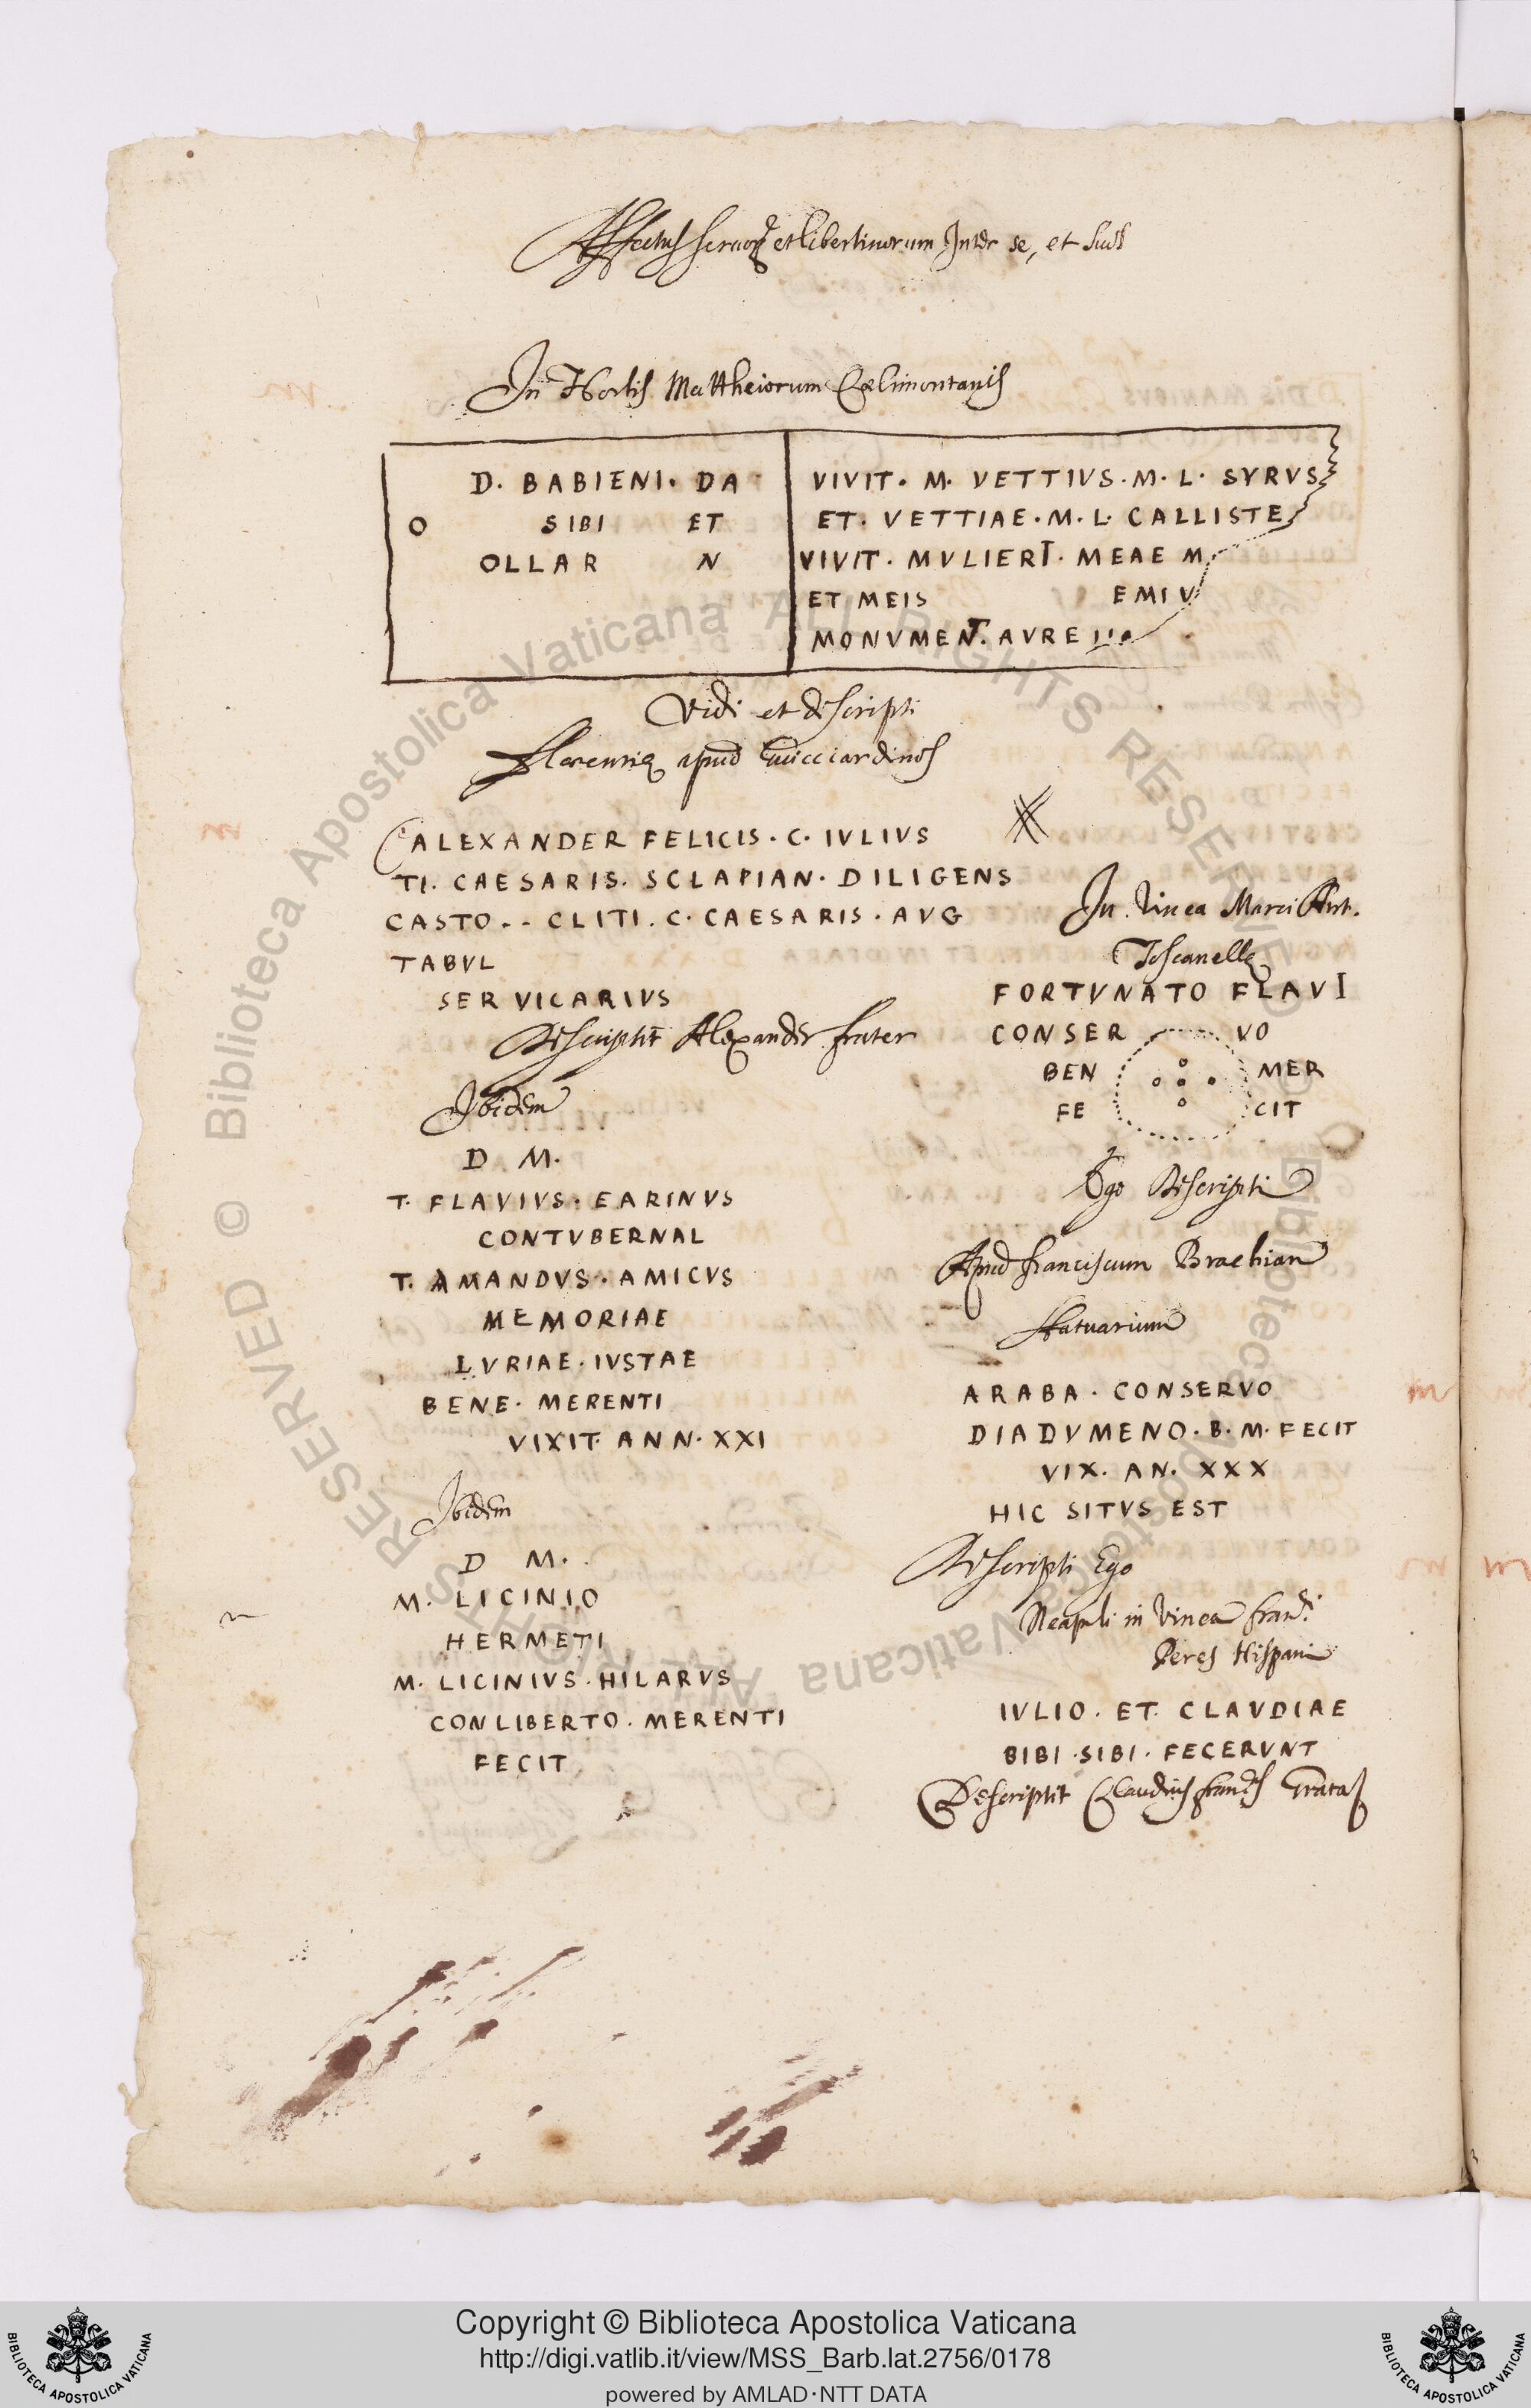 Affectus servorꝝ et libertinorum Inter se, et suos
In Hortis Mattheiorum Cœlimontanis
D. BABIENI. DA
O SIBI ET
OLLAR N
VIVIT. M. VETTIVS. M. L. SVRVS
ET. VETTIAE. M. L. CALLISTE
VIVIT. MVLIERI. MEAE M
ET MEIS EMIV
MONVMENT. AVRE
Vidi et descripti
Florentię apud Guicciardinos
ALEXANDER FELICIS. C. IVLIVS
TI. CAESARIS. SCLAPIAN. DILIGENS
CASTO.. CLITI. C. CAESARIS. AVG
TABVL
SER VICARIVS
Descriptit Alexander frater
Ibidem
D M.
T. FLAVIVS. EARINVS
CONTVBERNAL
T. AMANDVS. AMICVS
MEMORIAE
LVRIAE. IVSTAE
BENE. MERENTI
VIXIT. ANN. XXI
Ibidem
D M.
M. LICINIO
HERMETI
M. LICINIVS. HILARVS
CONLIBERTO. MERENTI
FECIT
In Vinea Marci Ant.
Toscanellę
FORTVNATO FLAVI
CONSER VO
BEN MER
FE CIT
Ego Descripti
Apud franciscum Brachian
statuarium
ARABA. CONSERVO
DIADVMENO. B. M. FECIT
VIX. AN. XXX
HIC SITVS EST
Descripti Ego
Neapoli in Vinea
Peres Hispani
IVLIO. ET. CLAVDIAE
BIBI. SIBI. FECERVNT
Descriptit Claudius
Copyright © Biblioteca Apostolica Vaticana
http://digi.vatlib.it/view/MSS_Barb.lat.2756/0178
powered by AMLAD·NTT DATA
BIBLIOTECA APOSTOLICA VATICANA
BIBLIOTECA APOSTOLICA VATICANA